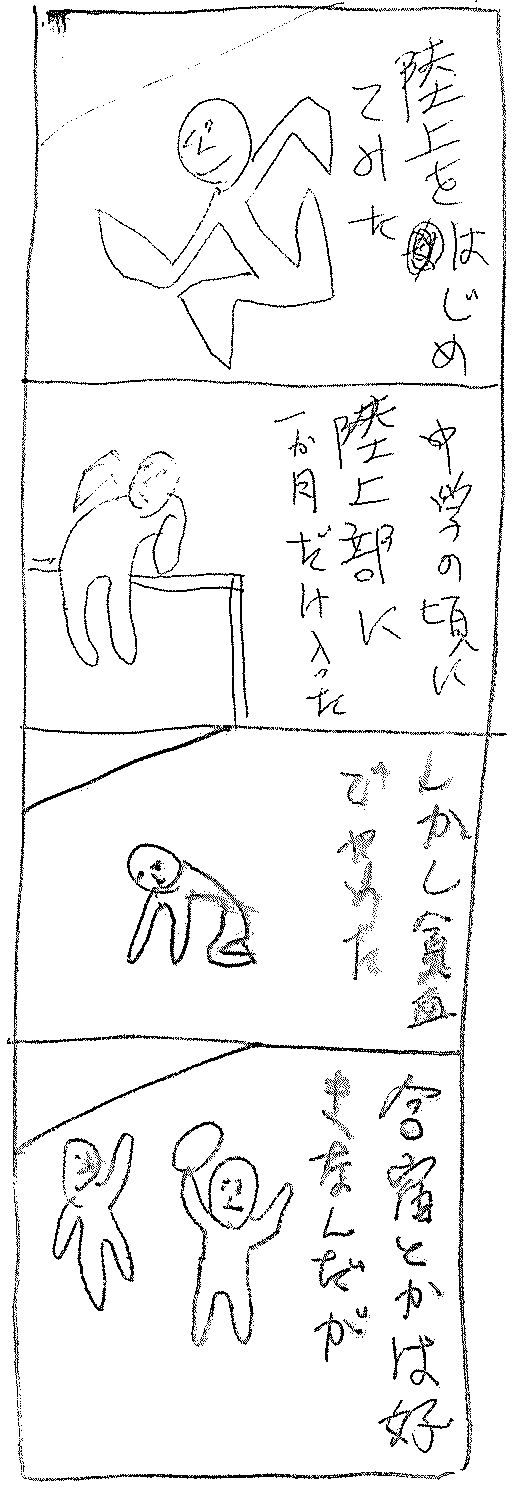 陸上をはじめ
てみた
中学の頃に
陸上部に
一か月だけ入った
しかし貧血
でやめた
合宿とかは好
きなんだが